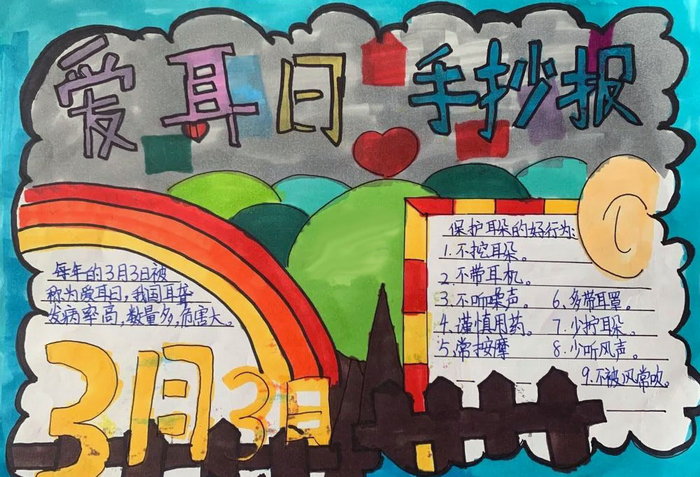 爱耳日 手抄报
每年的3月3日被
称为爱耳日,我国耳聋
发病率高,数量多,危害大。
3月3日
保护耳朵的好行为:
1.不挖耳朵。
2.不带耳机。
3.不听噪声。 6.多带耳罩。
4.谨慎用药。 7.少拧耳朵。
5.常按摩 8.少听风声。
9.不被风常吹。